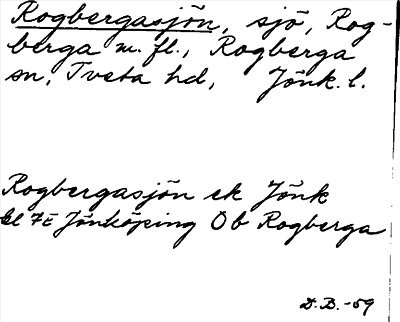 Rogbergasjön, sjö, Rog-
berga m. fl., Rogberga
sn, Tveta hd, Jönk. l.
Rogbergasjön ek Jönk
bl 7E Jönköping Ob Rogberga
D.B.-59